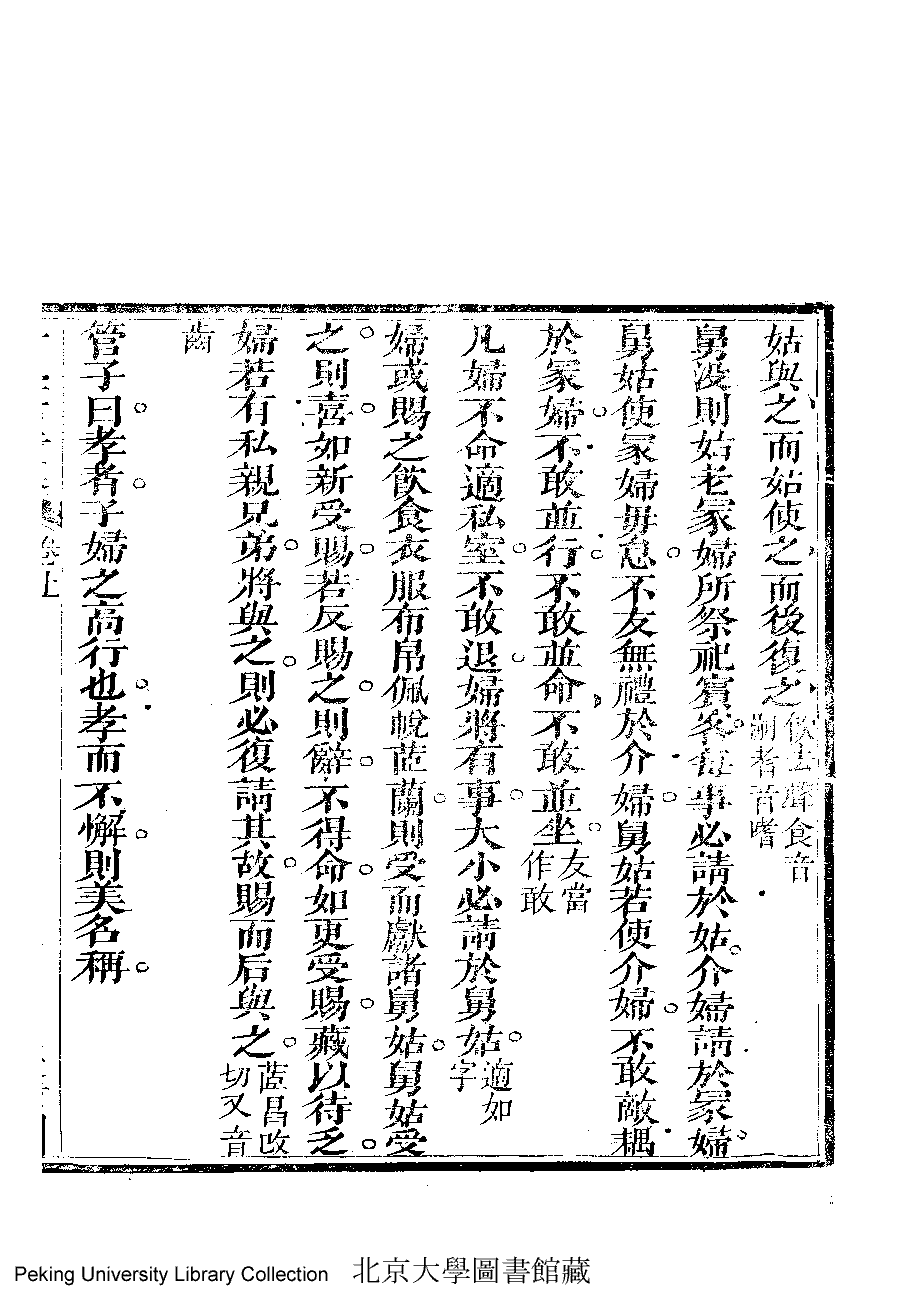 姑與之而姑使之而後復之飲去聲食音嗣耆音嗜
舅没則姑老冢婦所祭祀賓客每事必請於姑介婦請於冢婦
舅姑使冢婦毋怠不友無禮於介婦舅姑若使介婦不敢敵耦
於冢婦不敢並行不敢並命不敢並坐友當作敢
凡婦不命適私室不敢退婦將有事大小必請於舅姑適如字
婦或賜之飲食衣服布帛佩帨茝蘭則受而獻諸舅姑舅姑受
之則喜如新受賜若反賜之則辭不得命如更受賜藏以待乏
婦若有私親兄弟將與之則必復請其故賜而后與之茝昌改切又音
齒
管子曰孝者子婦之高行也孝而不懈則美名稱
卷上
Peking University Library Collection 北京大學圖書館藏